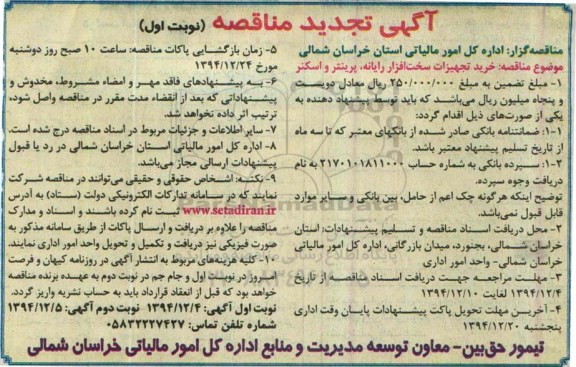 آگهی تجدید مناقصه (نوبت اول)
مناقصه‌گزار: اداره کل امور مالیاتی استان خراسان شمالی
موضوع مناقصه: خرید تجهیزات سخت‌افزار رایانه، پرینتر و اسکنر
۱- مبلغ تضمین به مبلغ ۲۵۰/۰۰۰/۰۰۰ ریال معادل دویست
و پنجاه میلیون ریال می‌باشد که باید توسط پیشنهاد دهنده به
یکی از صورت‌های ذیل اقدام گردد:
۱-۱: ضمانتنامه بانکی صادر شده از بانکهای معتبر که تا سه ماه
از تاریخ تسلیم پیشنهاد معتبر باشد.
۱-۲: سپرده بانکی به شماره حساب ۲۱۷۰۱۰۱۸۱۱۰۰۰ به نام
دریافت وجوه سپرده.
توضیح اینکه هرگونه چک اعم از حامل، بین بانکی و سایر موارد
قابل قبول نمی‌باشد.
۲- محل دریافت اسناد مناقصه و تسلیم پیشنهادات: استان
خراسان شمالی، بجنورد، میدان بازرگانی، اداره کل امور مالیاتی
خراسان شمالی- واحد امور اداری
۳- مهلت مراجعه جهت دریافت اسناد مناقصه از تاریخ
۱۳۹۴/۱۲/۴ لغایت ۱۳۹۴/۱۲/۱۰
۴- آخرین مهلت تحویل پاکت پیشنهادات پایان وقت اداری
پنجشنبه ۱۳۹۴/۱۲/۲۰
۵- زمان بازگشایی پاکات مناقصه: ساعت ۱۰ صبح روز دوشنبه
مورخ ۱۳۹۴/۱۲/۲۴
۶- به پیشنهادهای فاقد مهر و امضاء مشروط، مخدوش و
پیشنهاداتی که بعد از انقضاء مدت مقرر در مناقصه واصل شود،
ترتیب اثر داده نخواهد شد.
۷- سایر اطلاعات و جزئیات مربوط در اسناد مناقصه درج شده است.
۸- اداره کل امور مالیاتی استان خراسان شمالی در رد یا قبول
پیشنهادات ارسالی مجاز می‌باشد.
۹- نکته: اشخاص حقوقی و حقیقی می‌توانند در مناقصه شرکت
نمایند که در سامانه تدارکات الکترونیکی دولت (ستاد) به آدرس
www.setadiran.ir ثبت نام کرده باشند و اسناد و مدارک
مناقصه را علاوه بر دریافت و ارسال پاکات از طریق سامانه مذکور به
صورت فیزیکی نیز دریافت و تکمیل و تحویل واحد امور اداری نمایند.
۱۰- کلیه هزینه‌های مربوط به انتشار آگهی در روزنامه کیهان و فرصت
امروز در نوبت اول و جام جم در نوبت دوم به عهده برنده مناقصه
خواهد بود که قبل از انعقاد قرارداد باید به حساب نشریه واریز گردد.
نوبت اول آگهی: ۱۳۹۴/۱۲/۴ نوبت دوم آگهی: ۱۳۹۴/۱۲/۵
شماره تلفن تماس: ۰۵۸۳۲۲۲۷۴۲۷
تیمور حق‌بین- معاون توسعه مدیریت و منابع اداره کل امور مالیاتی خراسان شمالی